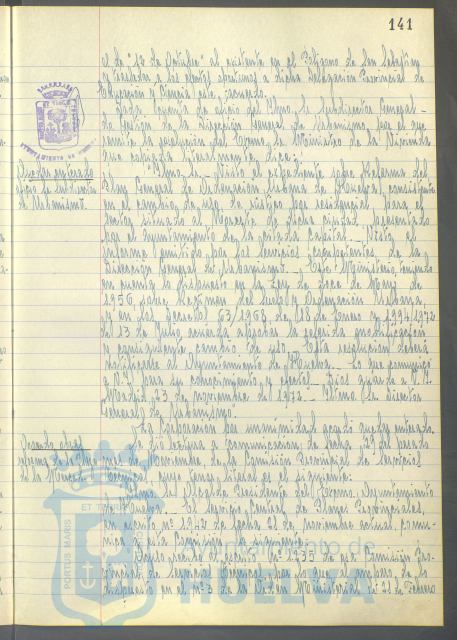 141
el de "12 de Octubre" al existente en el Polígono de San Sebastian
y trasladar a los efectos oportunos a dicha Delegación Provincial de
Educación y Ciencia este acuerdo.
Dada cuenta de oficio del Iltmo. Sr. Subdirector General
de Gestión de la Dirección General de Urbanismo, por el que
remite la resolución del Excmo. Sr. Ministro de la Vivienda
que copiada literalmente dice:
"Iltmo. Sr. Visto el expediente sobre Reforma del
Plan General de Ordenación Urbana de Huelva, consistente
en el cambio de uso de rústico por residencial para el
sector situado al Noreste de dicha ciudad, presentado
por el Ayuntamiento de la citada Capital. Visto el
informe emitido por los servicios correspondientes de la
Dirección General de Urbanismo. Este Ministerio, teniendo
en cuenta lo dispuesto en la Ley de doce de Mayo de
1956, sobre Régimen del Suelo y Ordenación Urbana,
y en los Decretos 63/1968, de 18 de Enero y 1994/1972
del 13 de Julio, acuerda aprobar la referida modificación
y consiguiente cambio de uso. Esta resolución deberá
notificarse al Ayuntamiento de Huelva. Lo que comunico
a V.I. para su conocimiento y efectos. Dios guarde a V.I.
Madrid, 23 de noviembre de 1972. Iltmo. Sr. Director
General de Urbanismo.
Quedar enterado
oficio de Subdirector
de Urbanismo.
La Corporación por unanimidad acordó quedar enterada.
Se dió lectura a comunicación, de fecha 29 del pasado
mes de Noviembre, de la Comisión Provincial de Servicios
Técnicos, cuyo tenor literal es el siguiente:
"Iltmo. Sr. Alcalde Presidente del Excmo. Ayuntamiento
de Huelva. El Servicio Central de Planes Provinciales,
en escrito nº 1942 de fecha 21 de noviembre actual, comu-
nica a esta Comisión lo siguiente:
recibido escrito nº 1935 de esa Comisión Pro-
vincial de Servicios Técnicos, por lo que al amparo de lo
dispuesto en el nº 3 de la Orden Ministerial de 28 de Febrero
PORTUS MARIS
ET TERRAE
Ayuntamiento de
HUELVA